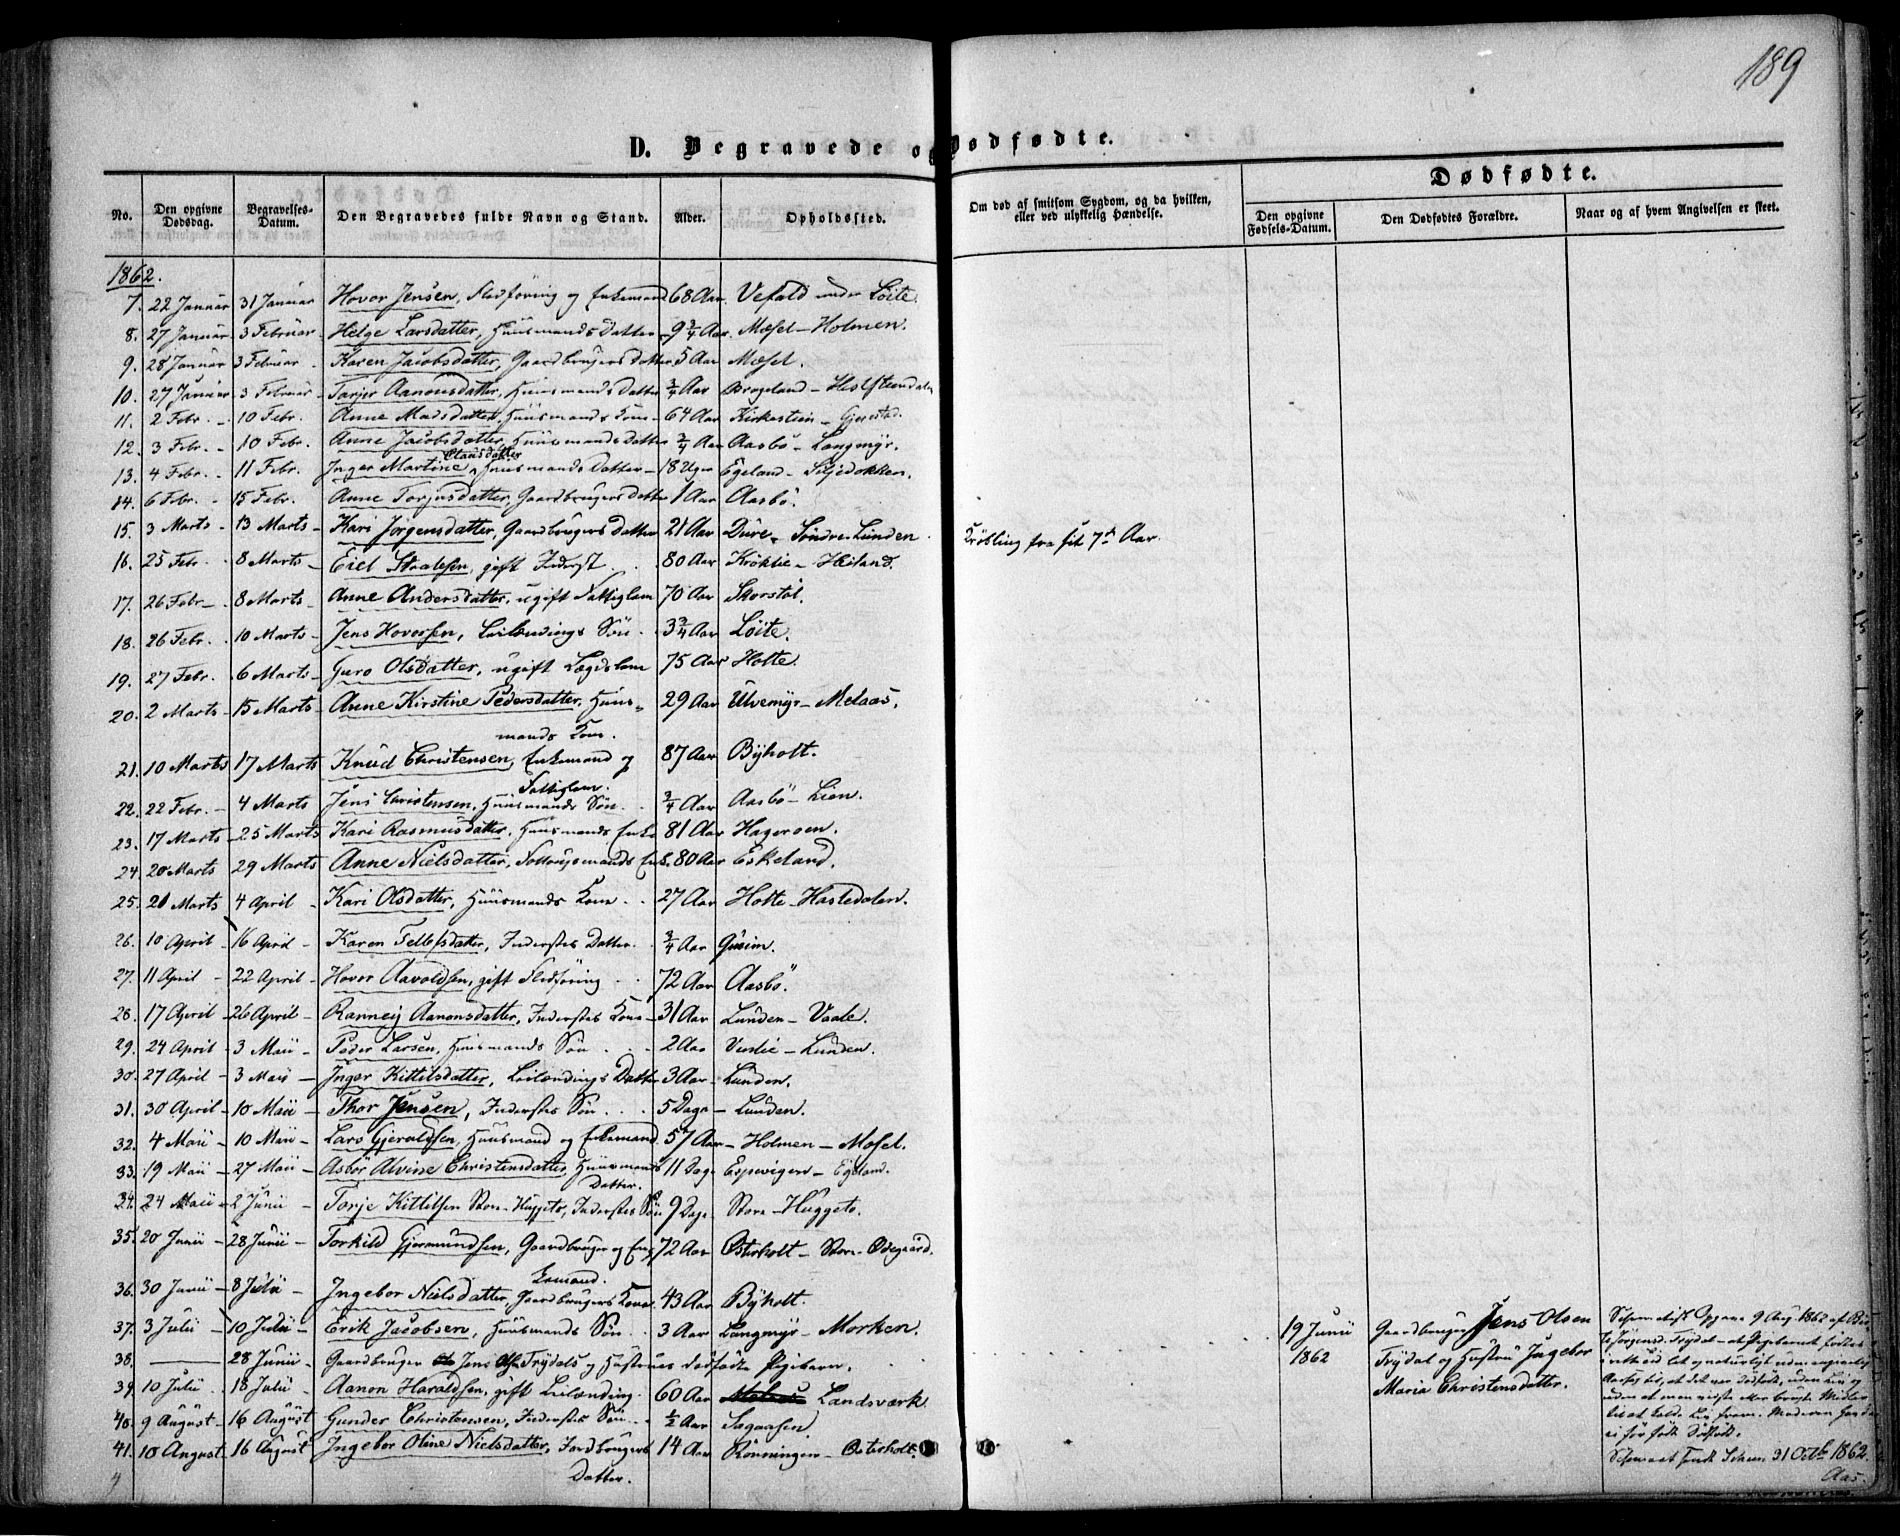 189
D. Begravede og Dødfødte.
Dødfødte.
No. Den opgivne Dødsdag. Begravelses-Datum. Den Begravedes fulde Navn og Stand. Alder. Opholdssted. Om død af smitsom Sygdom, og da hvilken, eller ved ulykkelig Hændelse. Den opgivne Fødsels-Datum. Den Dødfødtes Forældre. Naar og af hvem Angivelsen er skeet.
1862.
7. 22 Januar 31 Januar Hovor Jensen, Fledføring og Enkemand 68 Aar Vefald under Löite.
8. 27 Januar 3 Februar Helge Larsdatter, Huusmands Datter 9 3/4 Aar. Mæsel - Holmen.
9. 28 Januar 3 Februar Karen Jacobsdatter, Gaardbrugers datter 5 Aar Mæsel.
10. 27 Januar 3 Februar Torjer Aanonsdatter, Huusmands Datter 3/4 Aar Brogeland - Holsteindalen
11. 2 Febr. 10 Febr. Anne Madsdatter, Huusmands Kone 64 Aar Kirkestein - Gjerstad.
12. 3 Febr. 10 Febr. Anne Jacobsdatter, Huusmandsdatter 3/4 Aar Aasbö - Langmyr.
13. 4 Febr. 11 Febr. Inger Martine Olausdatter, Huusmands Datter 18 Uger Egeland - Siljedokken.
14. 6 Febr. 15 Febr. Anne Torjusdatter, Gaardbrugers Datter 1 Aar Aasbö.
15. 3 Marts 13 Marts Kari Jörgensdatter, Gaardbrugers Datter 21 Aar Dure - Söndre Lunden. Kröbling fra sit 7de Aar.
16. 25 Febr. 8 Marts Eiel Staalesen, gift Inderst 80 Aar Kröklie - Heiland.
17. 26 Febr. 8 Marts Anne Andersdatter, ugift Fattiglem 70 Aar Skorstöl.
18. 26 Febr. 10 Marts Jens Hovorsen, Leilændings Sön 3 3/4 Aar Löite.
19. 27 Febr. 6 Marts Guro Olsdatter, ugift Lægdslem 75 Aar Holte.
20. 2 Marts 15 Marts Anne Kirstine Pedersdatter, Huus- 29 Aar Ulvemyr - Melaas.
mands Kone.
21. 10 Marts 17 Marts Knud Christensen, Enkemand og 87 Aar Byholt.
Fattiglem.
22. 22 Febr. 4 Marts Jens Christensen, Huusmands Sön 3/4 Aar Aasbö - Lien.
23. 17 Marts 25 Marts Kari Rasmusdatter, Huusmands Enke 81 Aar Hageroen.
24. 20 Marts 29 Marts Anne Nielsdatter, Enke 80 Aar Eskeland.
25. 21 Marts 4 April Kari Olsdatter, Huusmands Kone 27 Aar Holte - Hastedalen.
26. 10 April 16 April Karen Tellefsdatter, Inderstes Datter 3/4 Aar Gusim.
27. 11 April 22 April Hovor Aavoldsen, gift Fledføring 72 Aar Aasbö.
28. 17 April 26 April Ranneij Aanonsdatter, Inderstes Kone 31 Aar Lunden - Vaale.
29. 24 April 3 Maii Peder Larsen, Huusmands Sön 2 Aar Verlie - Lunden.
30. 27 April 3 Maii Inger Kittilsdatter, Leilændings Datter 3 Aar Lunden.
31. 30 April 10 Maii Thor Jensen, Inderstes Sön 5 Dage Lunden.
32. 4 Maii 10 Maii Lars Gjeruldsen, Huusmand og Enkemand 57 Aar Holmen - Mosel.
33. 19 Maii 27 Maii Asbör Alvine Christensdatter, Huusmands 11 Dage Espevigen - Egeland.
Datter.
34. 24 Maii 2 Junii Torje Kittilsen Store-Huggeto, Inderstes Sön 9 Dage Store-Huggeto.
35. 20 Junii 28 Junii Torkild Gjermundsen, Gaardbruger og En- 72 Aar Østerholt - Store Ødegaard.
kemand.
36. 30 Junii 8 Julii Ingebor Nielsdatter, Gaardbrugers Kone 43 Aar Byholt.
37. 3 Julii 10 Julii Erik Jacobsen, Huusmands Sön 3 Aar Langmyr - Morken.
38. 28 Junii Gaardbruger Jens Olsen Trydals og Hustrues dødfødte Pigebarn.
19 Junii 1862 Gaardbruger Jens Olsen
Trydal og Hustru Ingebor
Maria Christensdatter.
39. 10 Julii 18 Julii Aanon Haraldsen, gift Leilænding 60 Aar Landsværk.
40. 9 August 16 August Gunder Christensen, Inderstes Sön 1/2 Aar Sagaasen.
41. 10 August 16 August Ingebor Oline Nielsdatter, Jordbrugers 14 Aar Rönningen - Østerholt.
Datter.
31 Octbr 1862.
Aas.